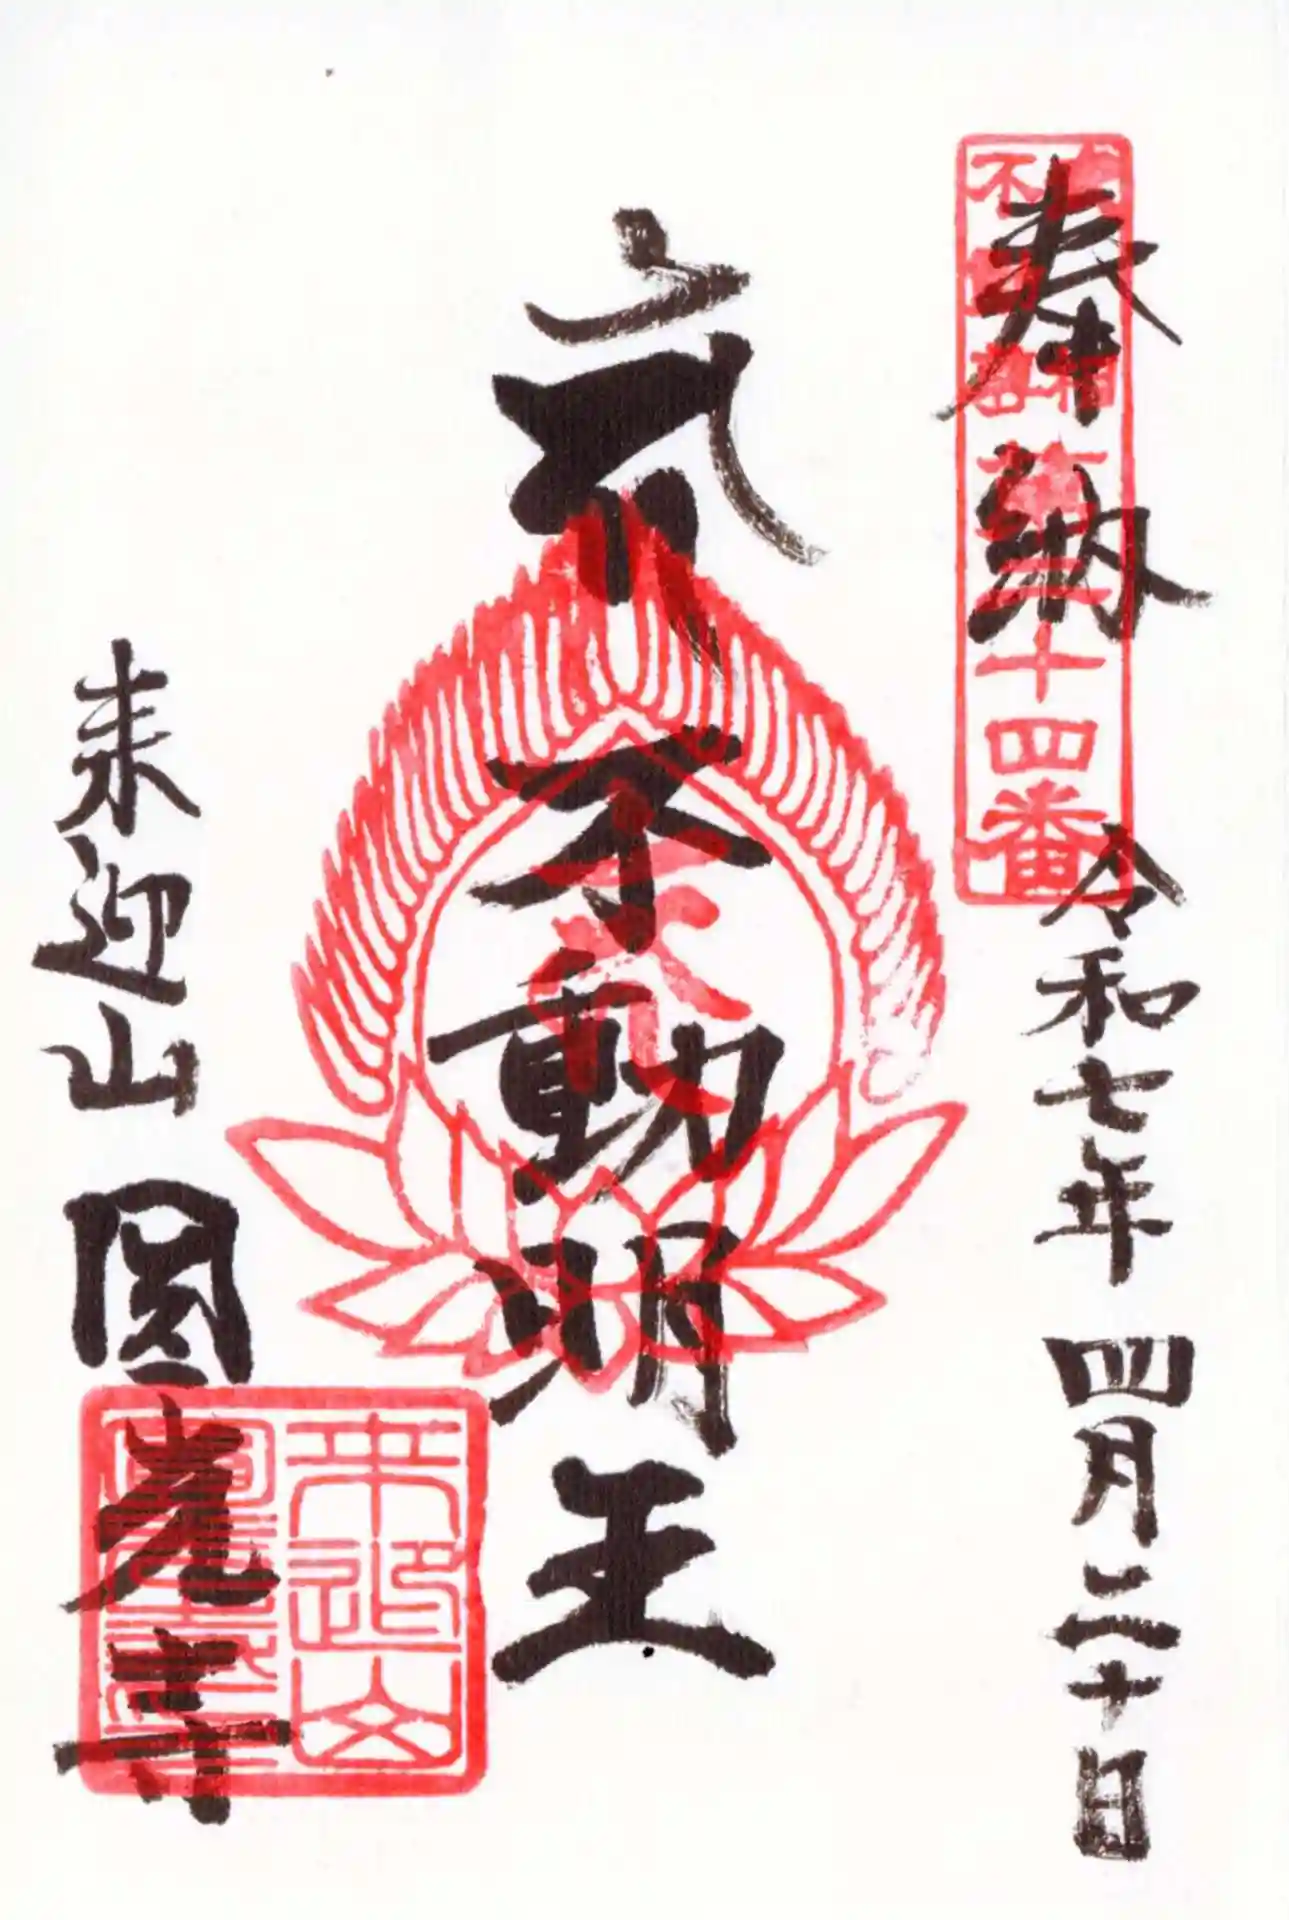 奉納
令和七年 四月二十日
武相
不動尊
第二十四番
不動明王
来迎山 圓光寺
来迎山